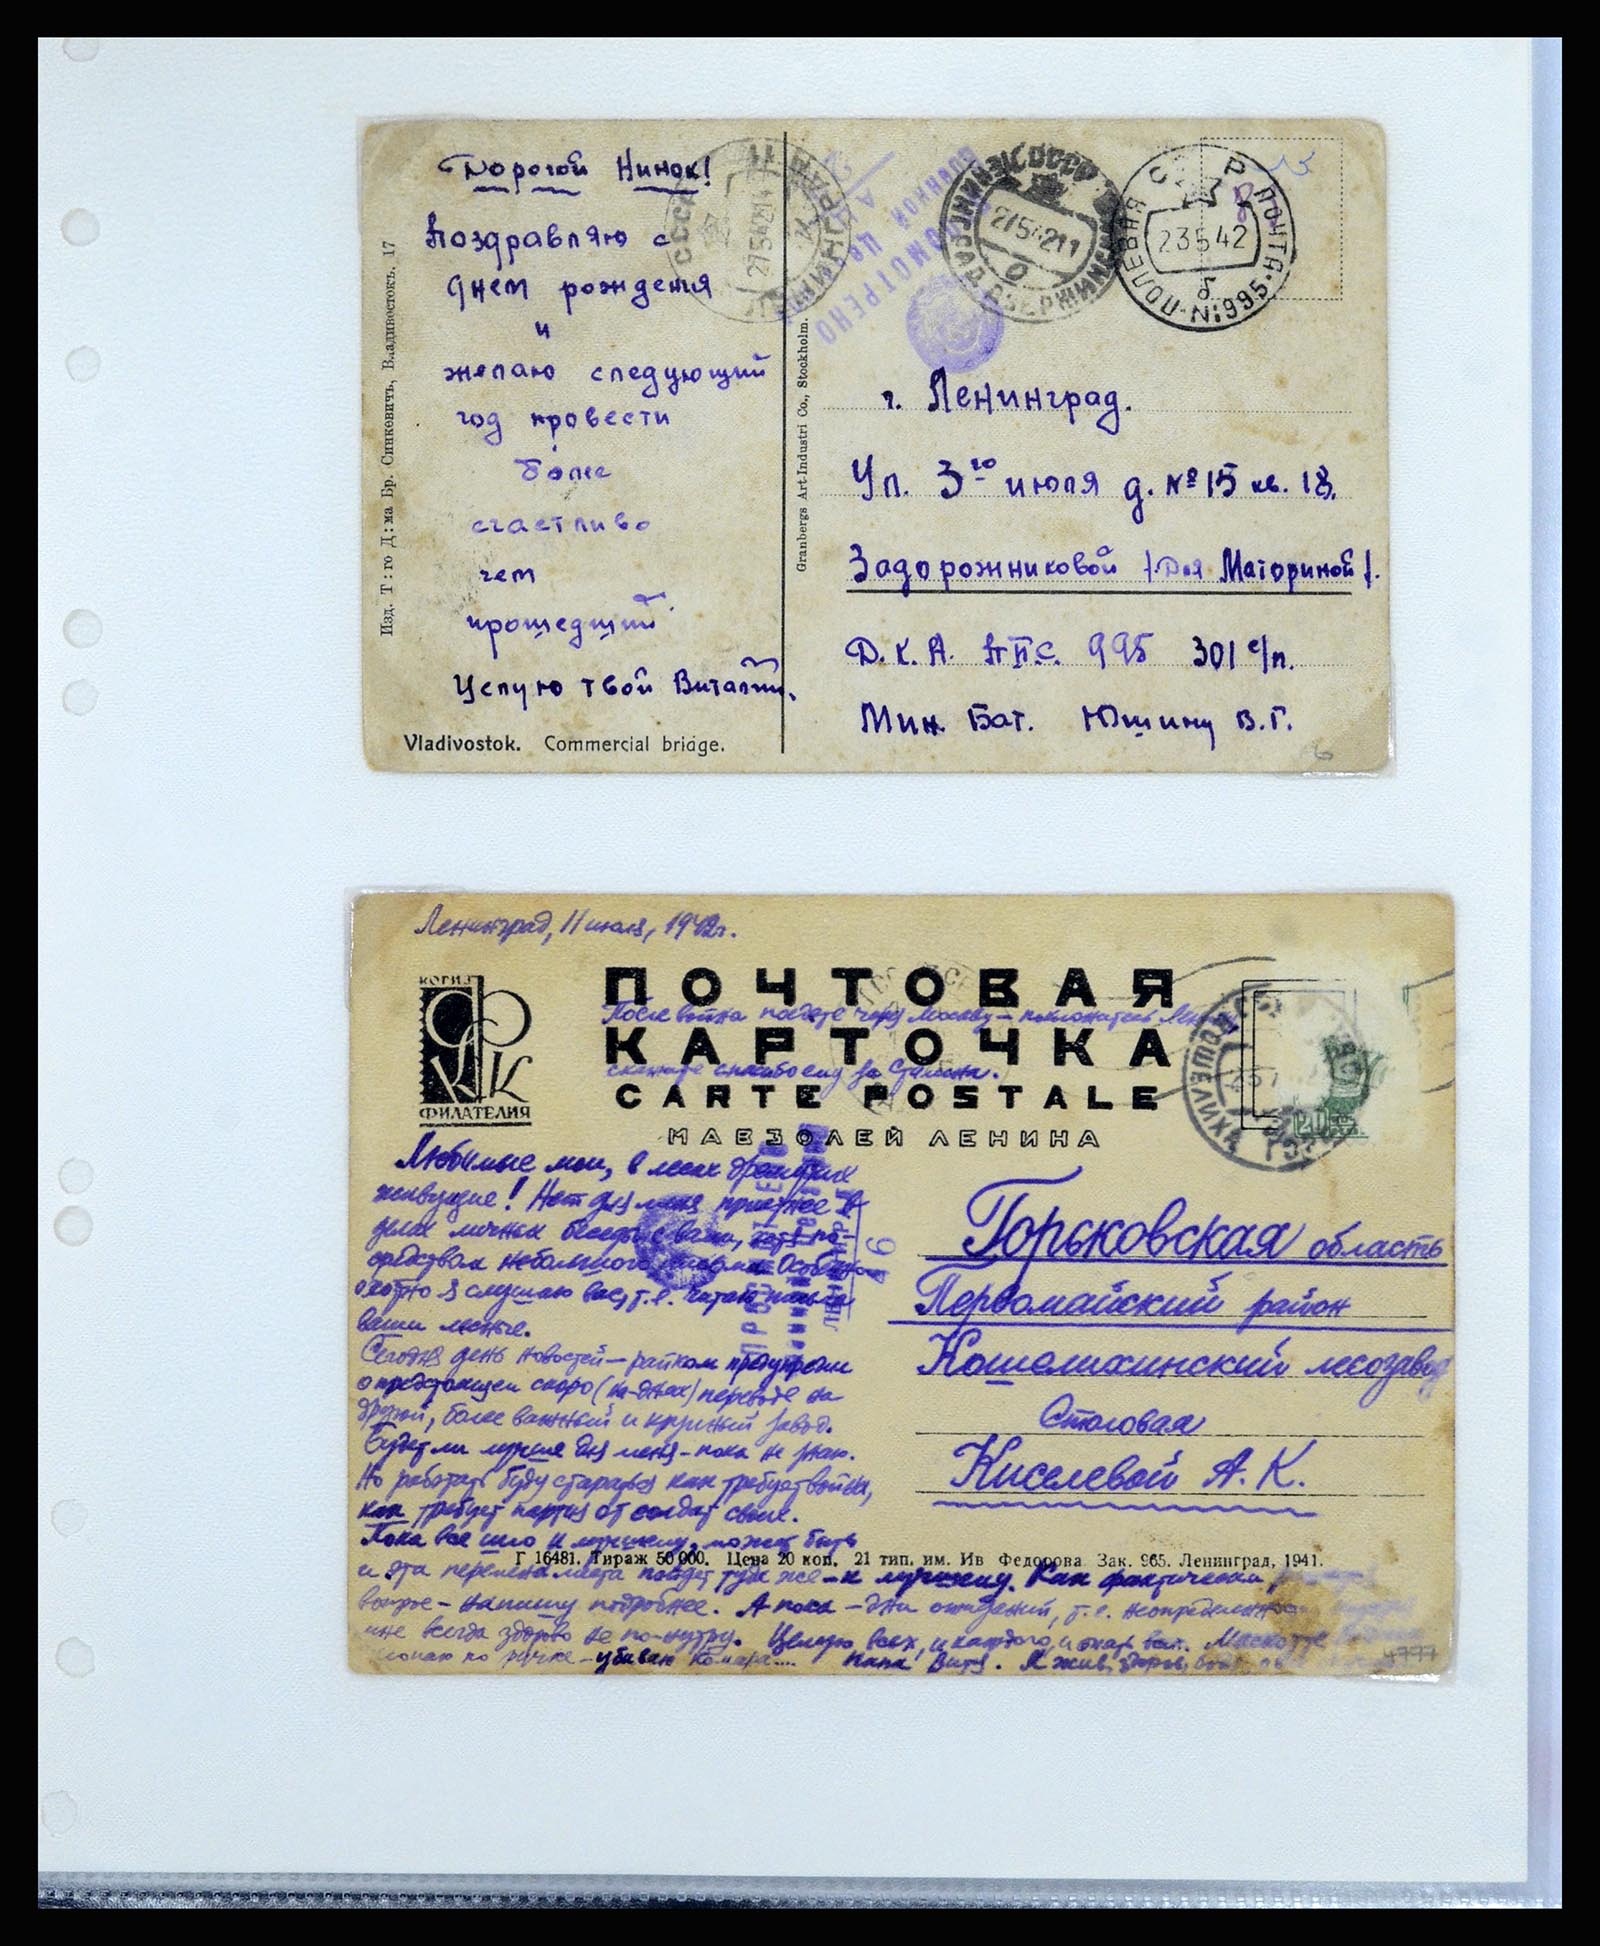 Дорогой Нинок!
Поздравляю с
днем рождения
и
желаю следующий
год провести
более
счастливо
чем
прошедший
Целую твой Виталий.
Vladivostok. Commercial bridge.
Изд. Т:го Д:ма Бр. Синкевичъ, Владивостокъ. 17
Granbergs Art-Industri Co., Stockholm.
СССР
ЛЕНИНГРАД
ПРОСМОТРЕНО
Военной Цензурой
27542 11
ПОЛЕВАЯ ПОЧТА N:995
23 5 42
б
г. Ленинград.
Ул. 3го июля д. №15 кв. 18.
Задорожниковой /Для Маториной/.
Д.К.А. ППС. 995 301 с/п.
Мин. Бат. Юшину В.Г.
Ленинград, 11 июля, 1942г.
КОГИЗ
ФИЛАТЕЛИЯ
ПОЧТОВАЯ
После войны поедете через Москву —
КАРТОЧКА
скажите спасибо ему за Сталина.
CARTE POSTALE
МАВЗОЛЕЙ ЛЕНИНА
Любимые мои, в лесах дремучих
живущие! Нет для меня приятнее в
делах личных беседы с вами, хотя по-
средством небольшого письма. Особенно
охотно я слушаю вас, т.е. читаю письма
ваши лесные.
Сегодня день новостей — райком предупредил
о предстоящем скоро (на-днях) переводе на
другой, более важный и крупный завод.
Будет ли лучше для меня — пока не знаю.
Но работать буду стараться как требует война,
как требует партия от солдат своих.
Пока все шло к лучшему, может быть
Г 16481. Тираж 50 000. Цена 20 коп. 21 тип. им. Ив Федорова Зак. 965. Ленинград, 1941.
и эта перемена места пойдет туда же — к лучшему. Как фактически
вопрос — напишу подробнее. А пока — дни ожиданий, т.е.
мне всегда здорово не по-нутру. Целую всех, и каждого, и опять всех.
по ручке — убиваю комара.... папа Витя. Я жив, здоров,
4777
Горьковская область
Первомайский район
Кошелихинский лесозавод
Столовая
Киселевой А.К.